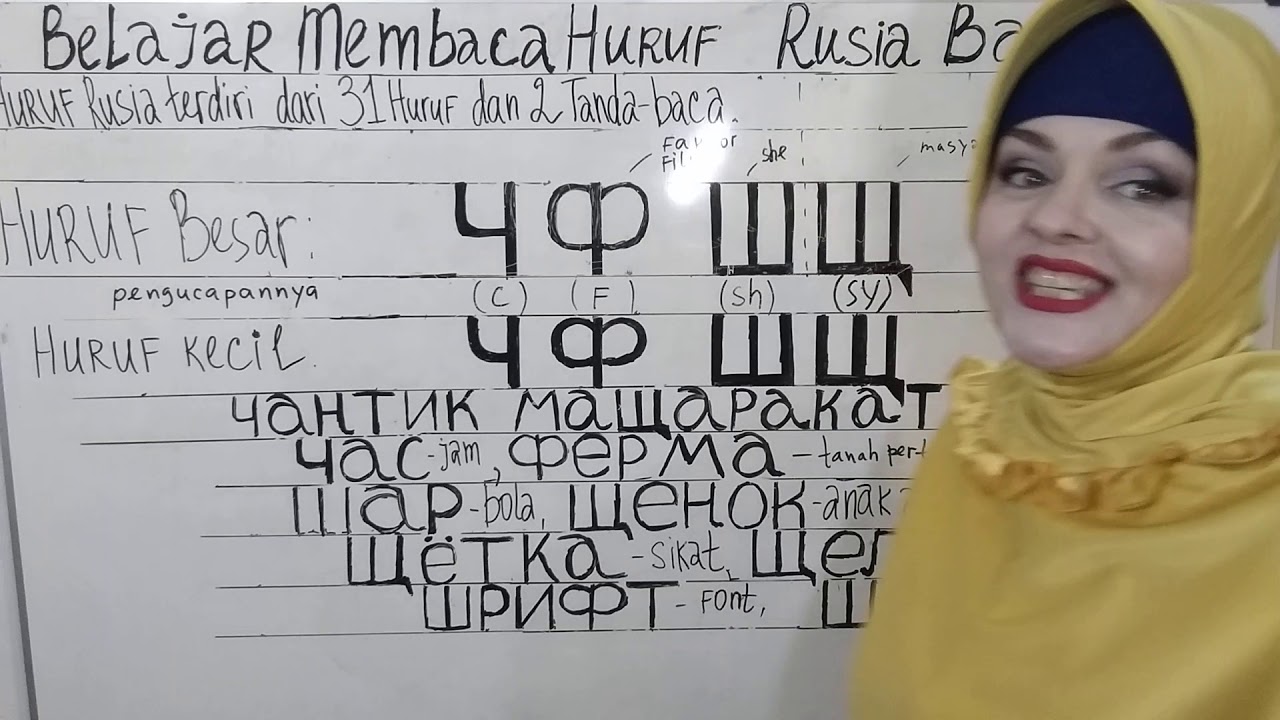 Belajar Membaca Huruf Rusia
Huruf Rusia terdiri dari 31 Huruf dan 2 Tanda-baca.
she
Huruf Besar: Ч Ф Ш Щ
pengucapannya (C) (F) (sh) (sy)
Huruf kecil. ч ф ш щ
чантик мащаракат
час-jam, ферма - tanah
шар-bola, щенок-anak
щётка - sikat,
шрифт - Font,